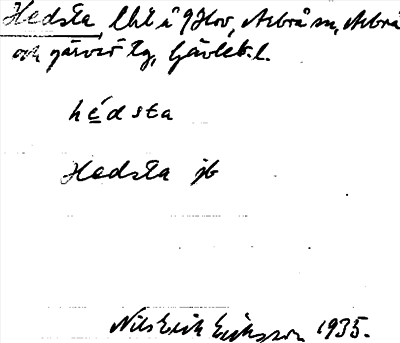 Hedsta, lht i Hov, Arbrå sn, Arbrå
och Järvsö tg, Gävleb. l.
hédsta
Hedsta jb
Nils Erik Eriksson 1935.